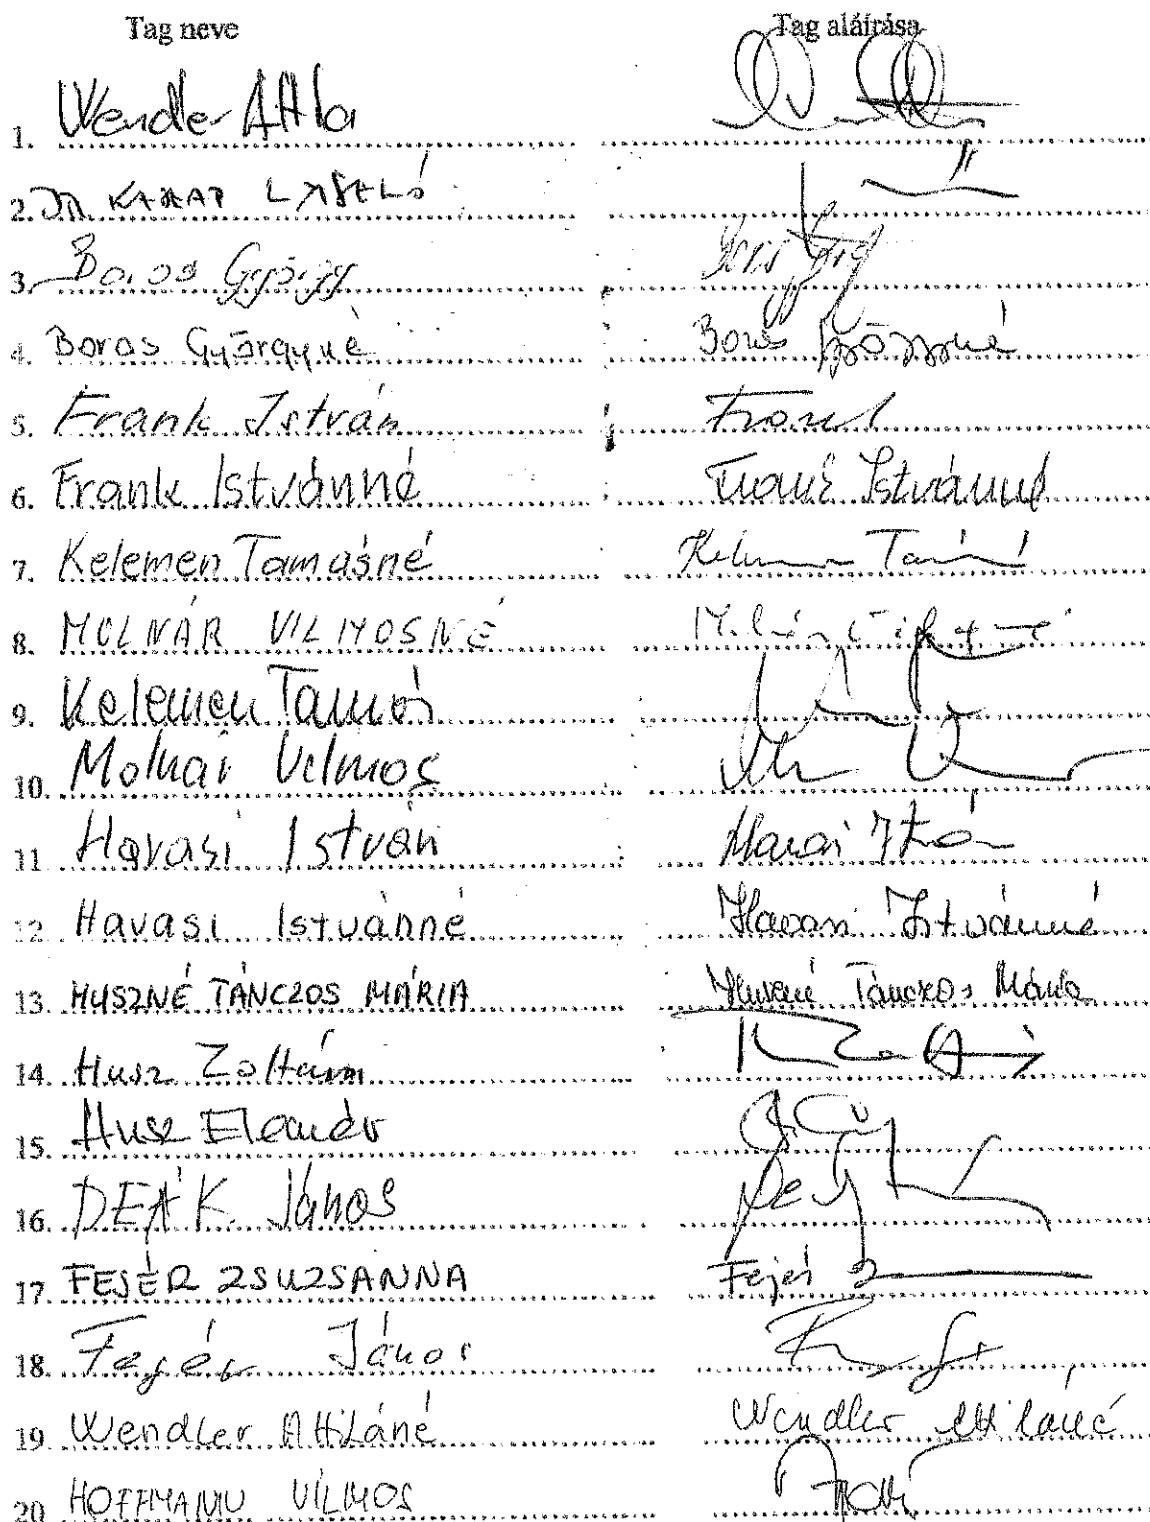 Tag neve Tag aláírása
1. Wendler Attila
2. DR László
3. Boros György
4. Boros Györgyné Boros Györgyné
5. Frank István Frank
6. Frank Istvánné Frank Istvánné
7. Kelemen Tamásné Kelemen
8. MOLNÁR VILMOSNÉ
9. Kelemen Tamás
10. Molnár Vilmos
11 Havasi István Havasi István
12 Havasi Istvánné Havasi Istvánné
13. HUSZNÉ TÁNCZOS MÁRIA Huszné Tánczos Mária
14. Husz Zoltán
15. Husz Elemér
16. DEÁK János
17. FEJÉR ZSUZSANNA Fejér
18. Fejér János
19 Wendler Attiláné Wendler Attiláné
20 HOFFMANN VILMOS